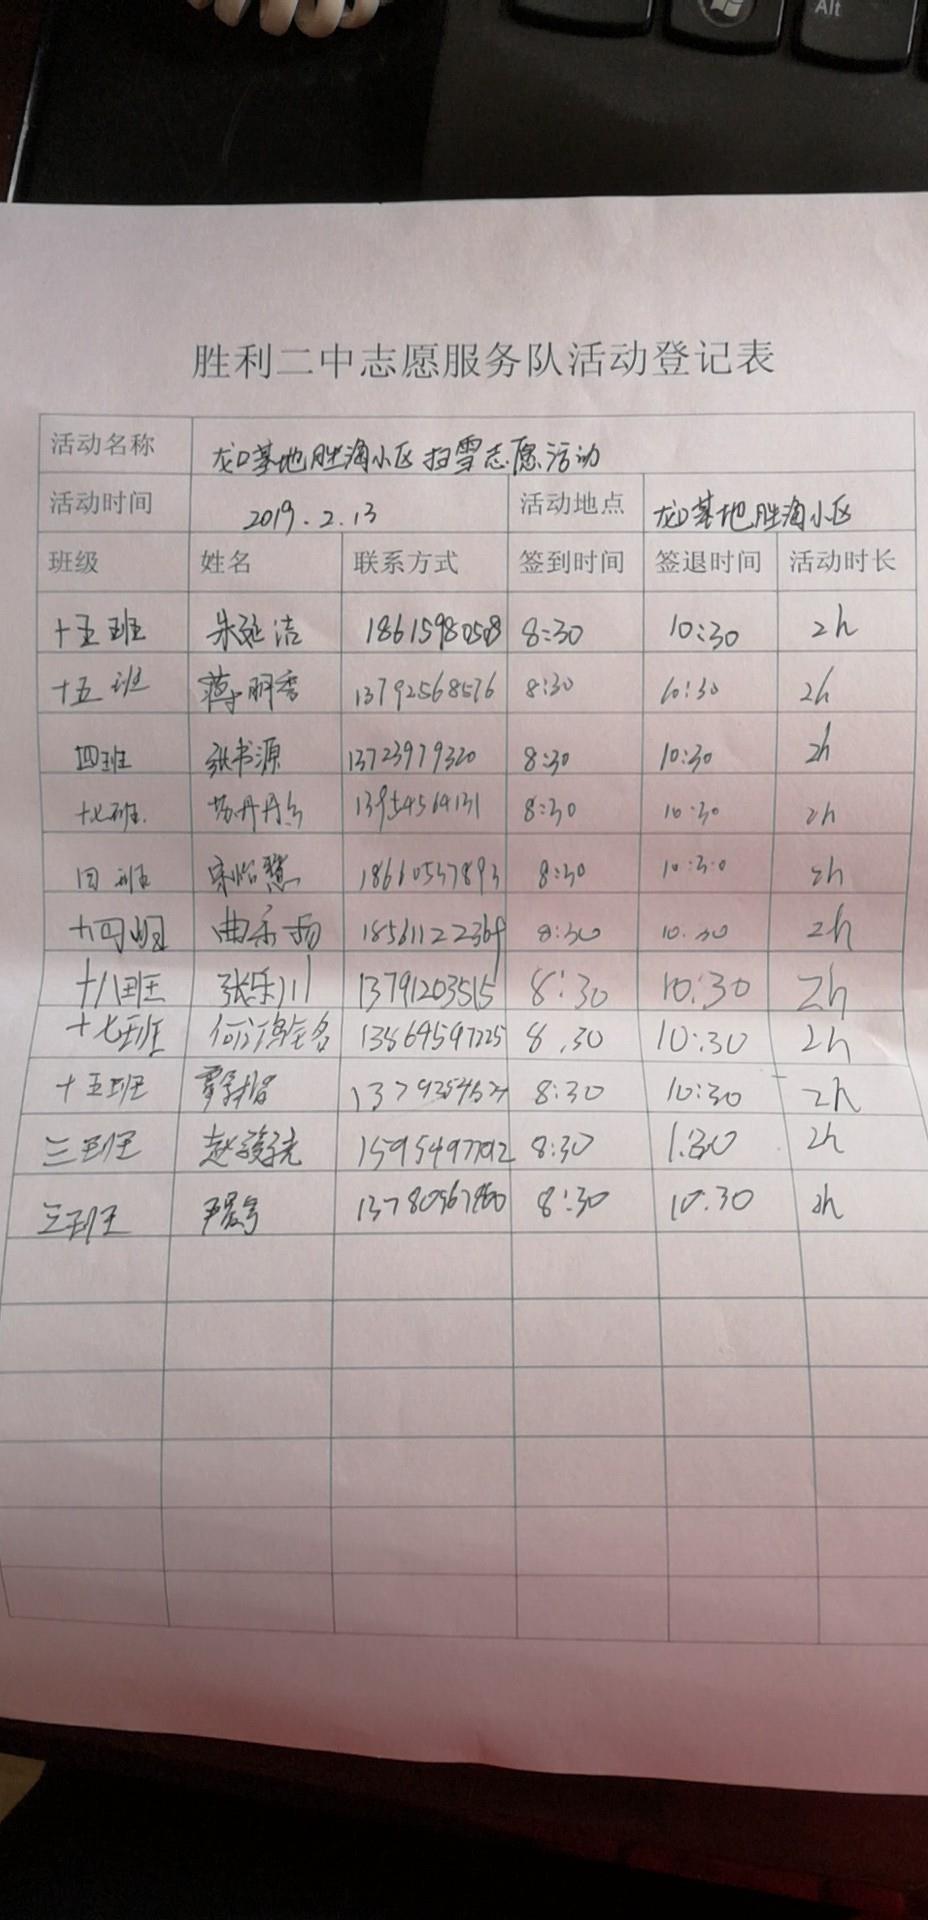 Alt
胜利二中志愿服务队活动登记表
活动名称 龙口基地胜海小区扫雪志愿活动
活动时间 2019.2.13 活动地点 龙口基地胜海小区
班级 姓名 联系方式 签到时间 签退时间 活动时长
十五班 朱延洁 18615980508 8:30 10:30 2h
十五班 薄丽香 13792568576 8:30 10:30 2h
四班 张书源 13723979320 8:30 10:30 2h
十七班. 苏丹丹 13954564131 8:30 10:30 2h
四班 宋怡慧 18660537893 8:30 10:30 2h
十四班 曲乐扬 8:30 10.30 2h
十八班 张乐川 13791203515 8:30 10:30 2h
十七班 13864597225 8.30 10:30 2h
十五班 8:30 10:30 2h
三班 赵骏尧 8:30 1:30 2h
三班 8:30 10.30 2h